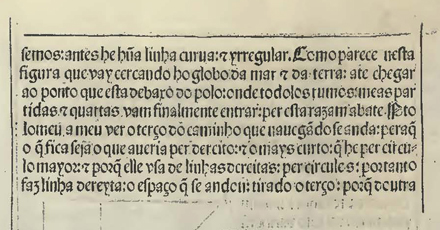 semos: antes he hũa linha curua: ⁊ yrregular. Como parece nesta
figura que vay cercando ho globo da mar ⁊ da terra: ate chegar
ao ponto que esta debaxo do polo: onde todolos rumos: meas par
tidas ⁊ quartas vam finalmente entrar: per esta razam abate. Pto
lomeu, a meu ver o terço dõ caminho que nauegãdo se anda: peraq̃
o q̃ fica seja o que aueria per dercito: ⁊ o mays curto: q̃ he per circu-
lo mayor: ⁊ porq̃ elle vsa de linhas dereitas: per circules: portanto
faz linha derexta: o espaço q̃ se andou: tirado o terço: porq̃ deutra